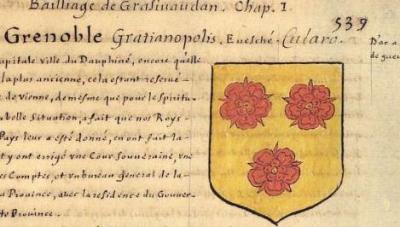 Bailliage de Grasivaudan. Chap. 1.
539
Grenoble Gratianopolis, Euesché. Cularo.
capitale ville du Dauphiné, encore qu'elle
la plus ancienne, cela estant reserué
de vienne, de mesme que pour le spiritu-
belle Situation, a fait que nos Roys
Pays leur a esté donné, en ont fait la
et y ont errigé vne Cour souueraine, vne
es Comptes, et vn bureau general de la
a Prouince, auec la residence du Gouuer-
te Prouince.
D'or a
de gueu